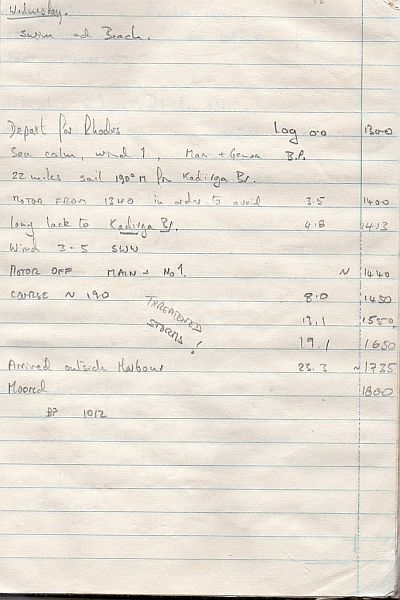 Wednesday.
Swim and Beach.
Depart for Rhodes Log 0.0 1300
Sea calm, wind 1, Main + Genoa B.P.
22 miles sail 190° M from Kadirga Br.
MOTOR FROM 1340 in order to avoid 3.5 1400
long tack to Kadirga Br. 4.8 1413
Wind 3-5 SWW
MOTOR OFF MAIN + No 1. ~ 1440
COURSE ~ 190 8.0 1450
THREATENED
STORMS!
13.1 1550
19.1 1650
Arrived outside Harbour 23.3 ~1735
Moored 1800
BP 1012